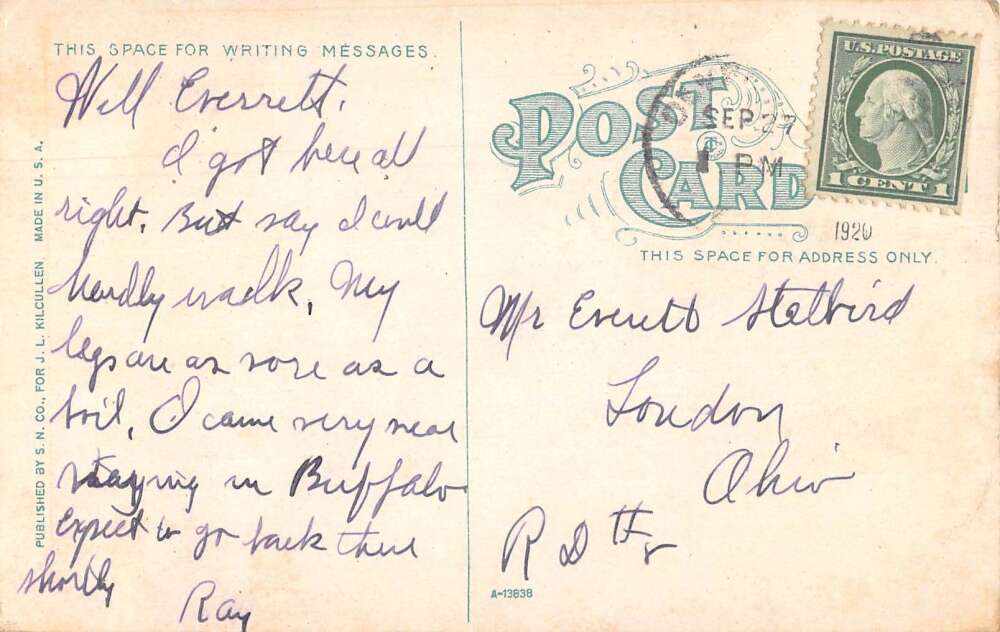 THIS SPACE FOR WRITING MESSAGES.
Well Everrett.
I got here all
right. But say I could
hardly walk. My
legs are as sore as a
boil. I came very near
staying in Buffalo
expect to go back there
shortly
Ray
PUBLISHED BY S. N. CO., FOR J. L. KILCULLEN. MADE IN U. S. A.
POST CARD
SEP 27
PM
1920
U.S. POSTAGE
1 CENT 1
THIS SPACE FOR ADDRESS ONLY.
Mr Everett
London
Ohio
R D #
A-13838